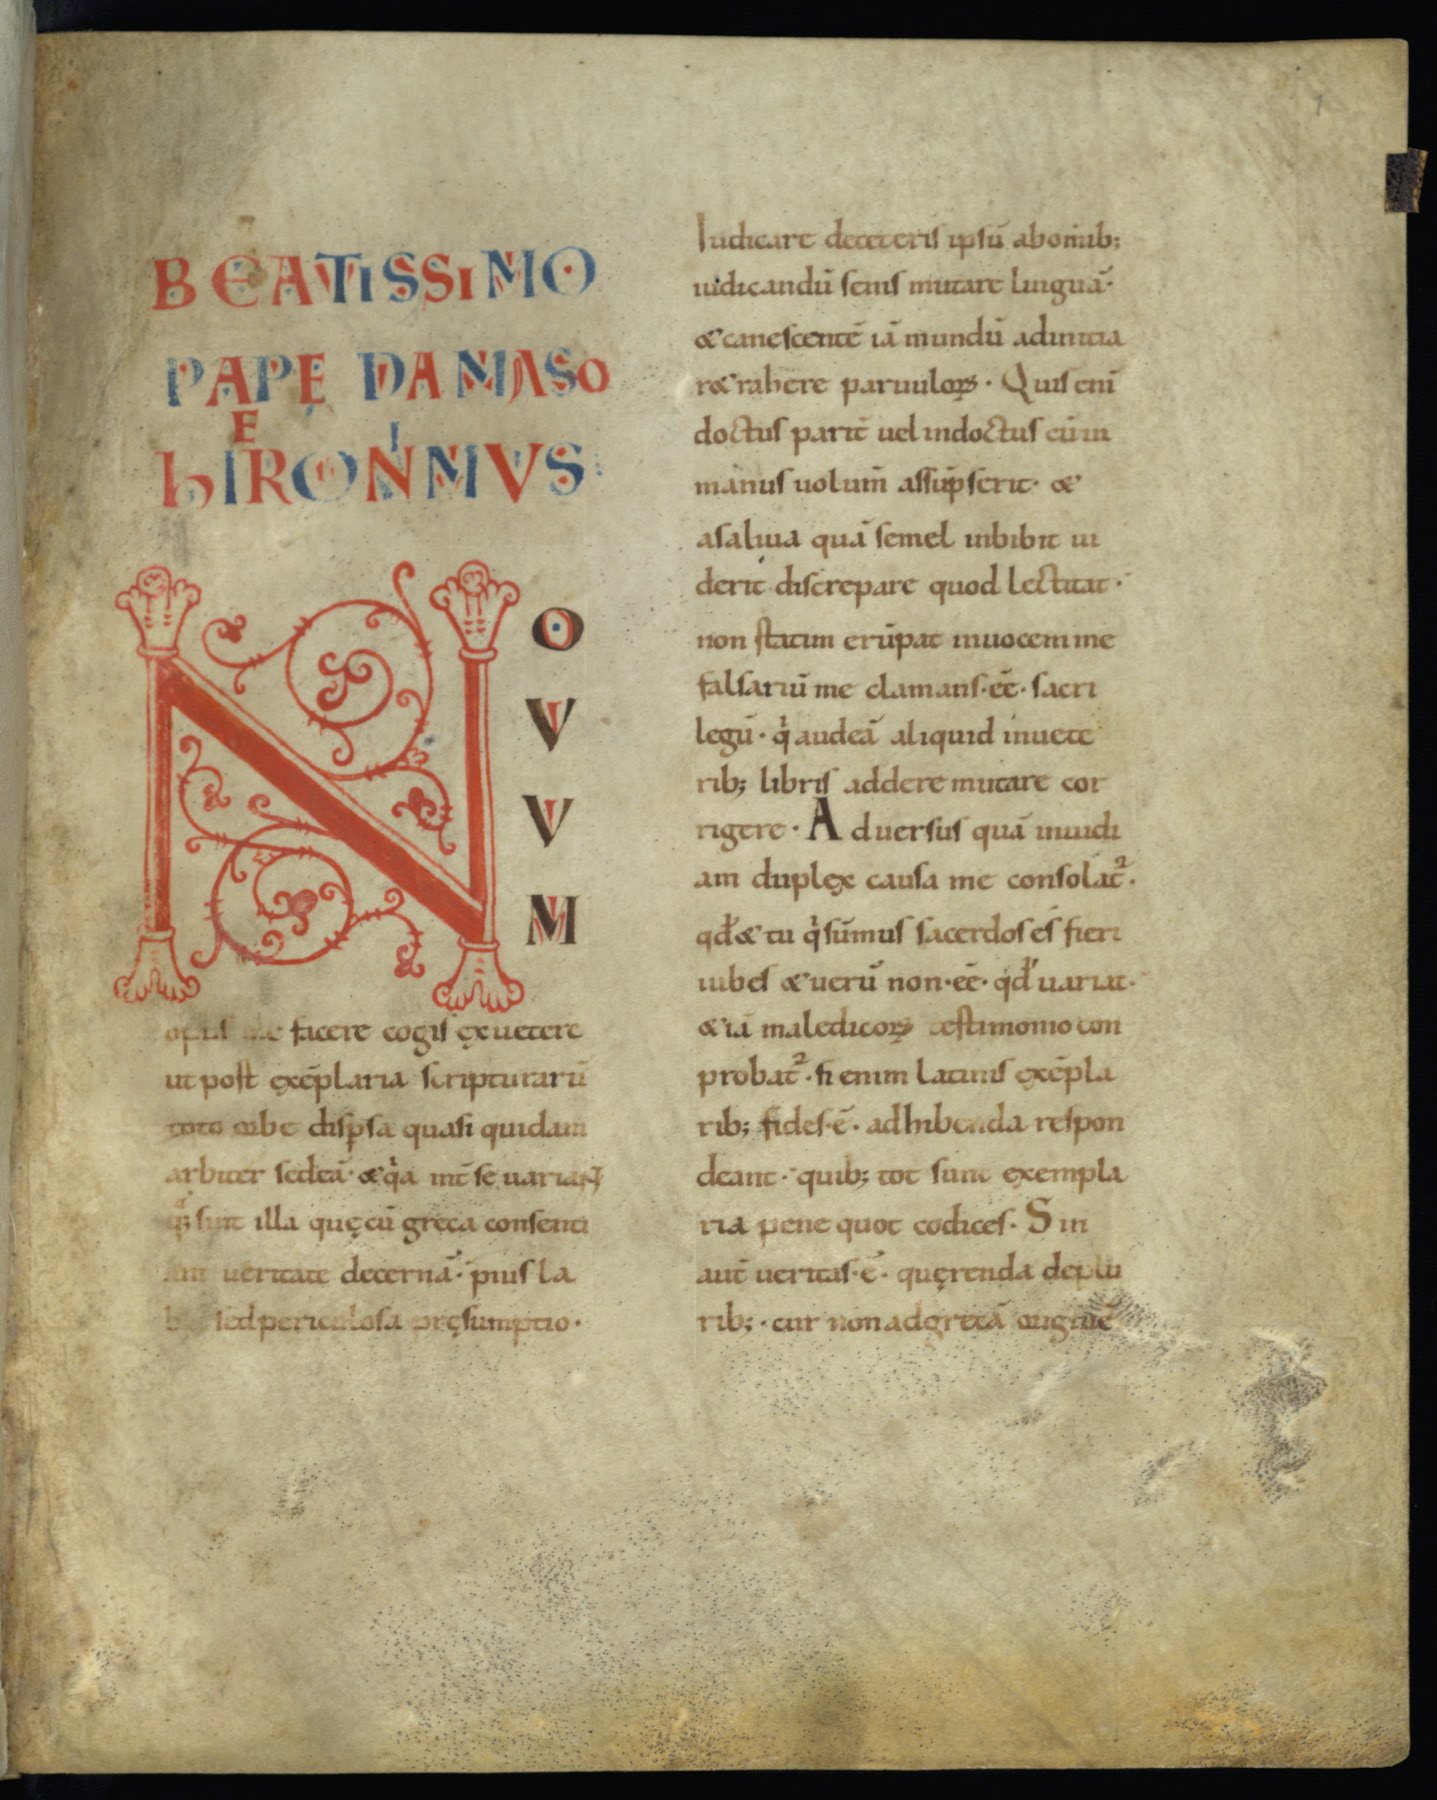 1
BEATISSIMO
PAPĘ DAMASO
hIERONIMVS
NOVVM
opus me facere cogis ex uetere
ut post exēplaria scripturarū
toto orbe disꝑsa quasi quidam
arbiter sedeā· &qͥa int̄ se uariant
q̄ sint illa quęcū greca consenti
ant ueritate decernā· pius la
bor sedpericulosa pręsumptio·
Iudicare deceteris ipsū abom̄ib;
iudicandū senis mutare linguā·
&canescentē iā mundū adinitia
r&rahere paruuloꝝ· Quis eni
doctus parit̄ uel indoctus cū in
manus uolum̄ assūpserit· &
asaliua quā semel inbibit ui
derit discrepare quod lectitat·
non statim erūpat inuocem me
falsariū me clamans·eē· sacri
legū· qͥ audeā aliquid inuete
rib; libris addere mutare cor
rigere· Aduersus quā inuidi
am duplex causa me consolat̄·
qd̄ & tu qͥ sūmus sacerdos és fieri
iubes & uerū non·eē· qd̄ uariat·
& iā maledicoꝝ testimonio con
probat̄· si enim latinis exēpla
rib; fides·ē· adhibenda respon
deant· quib; tot sunt exempla
ria pene quot codices· Sin
aut̄ ueritas·ē· quęrenda deplu
rib;· cur non adgrecā originē